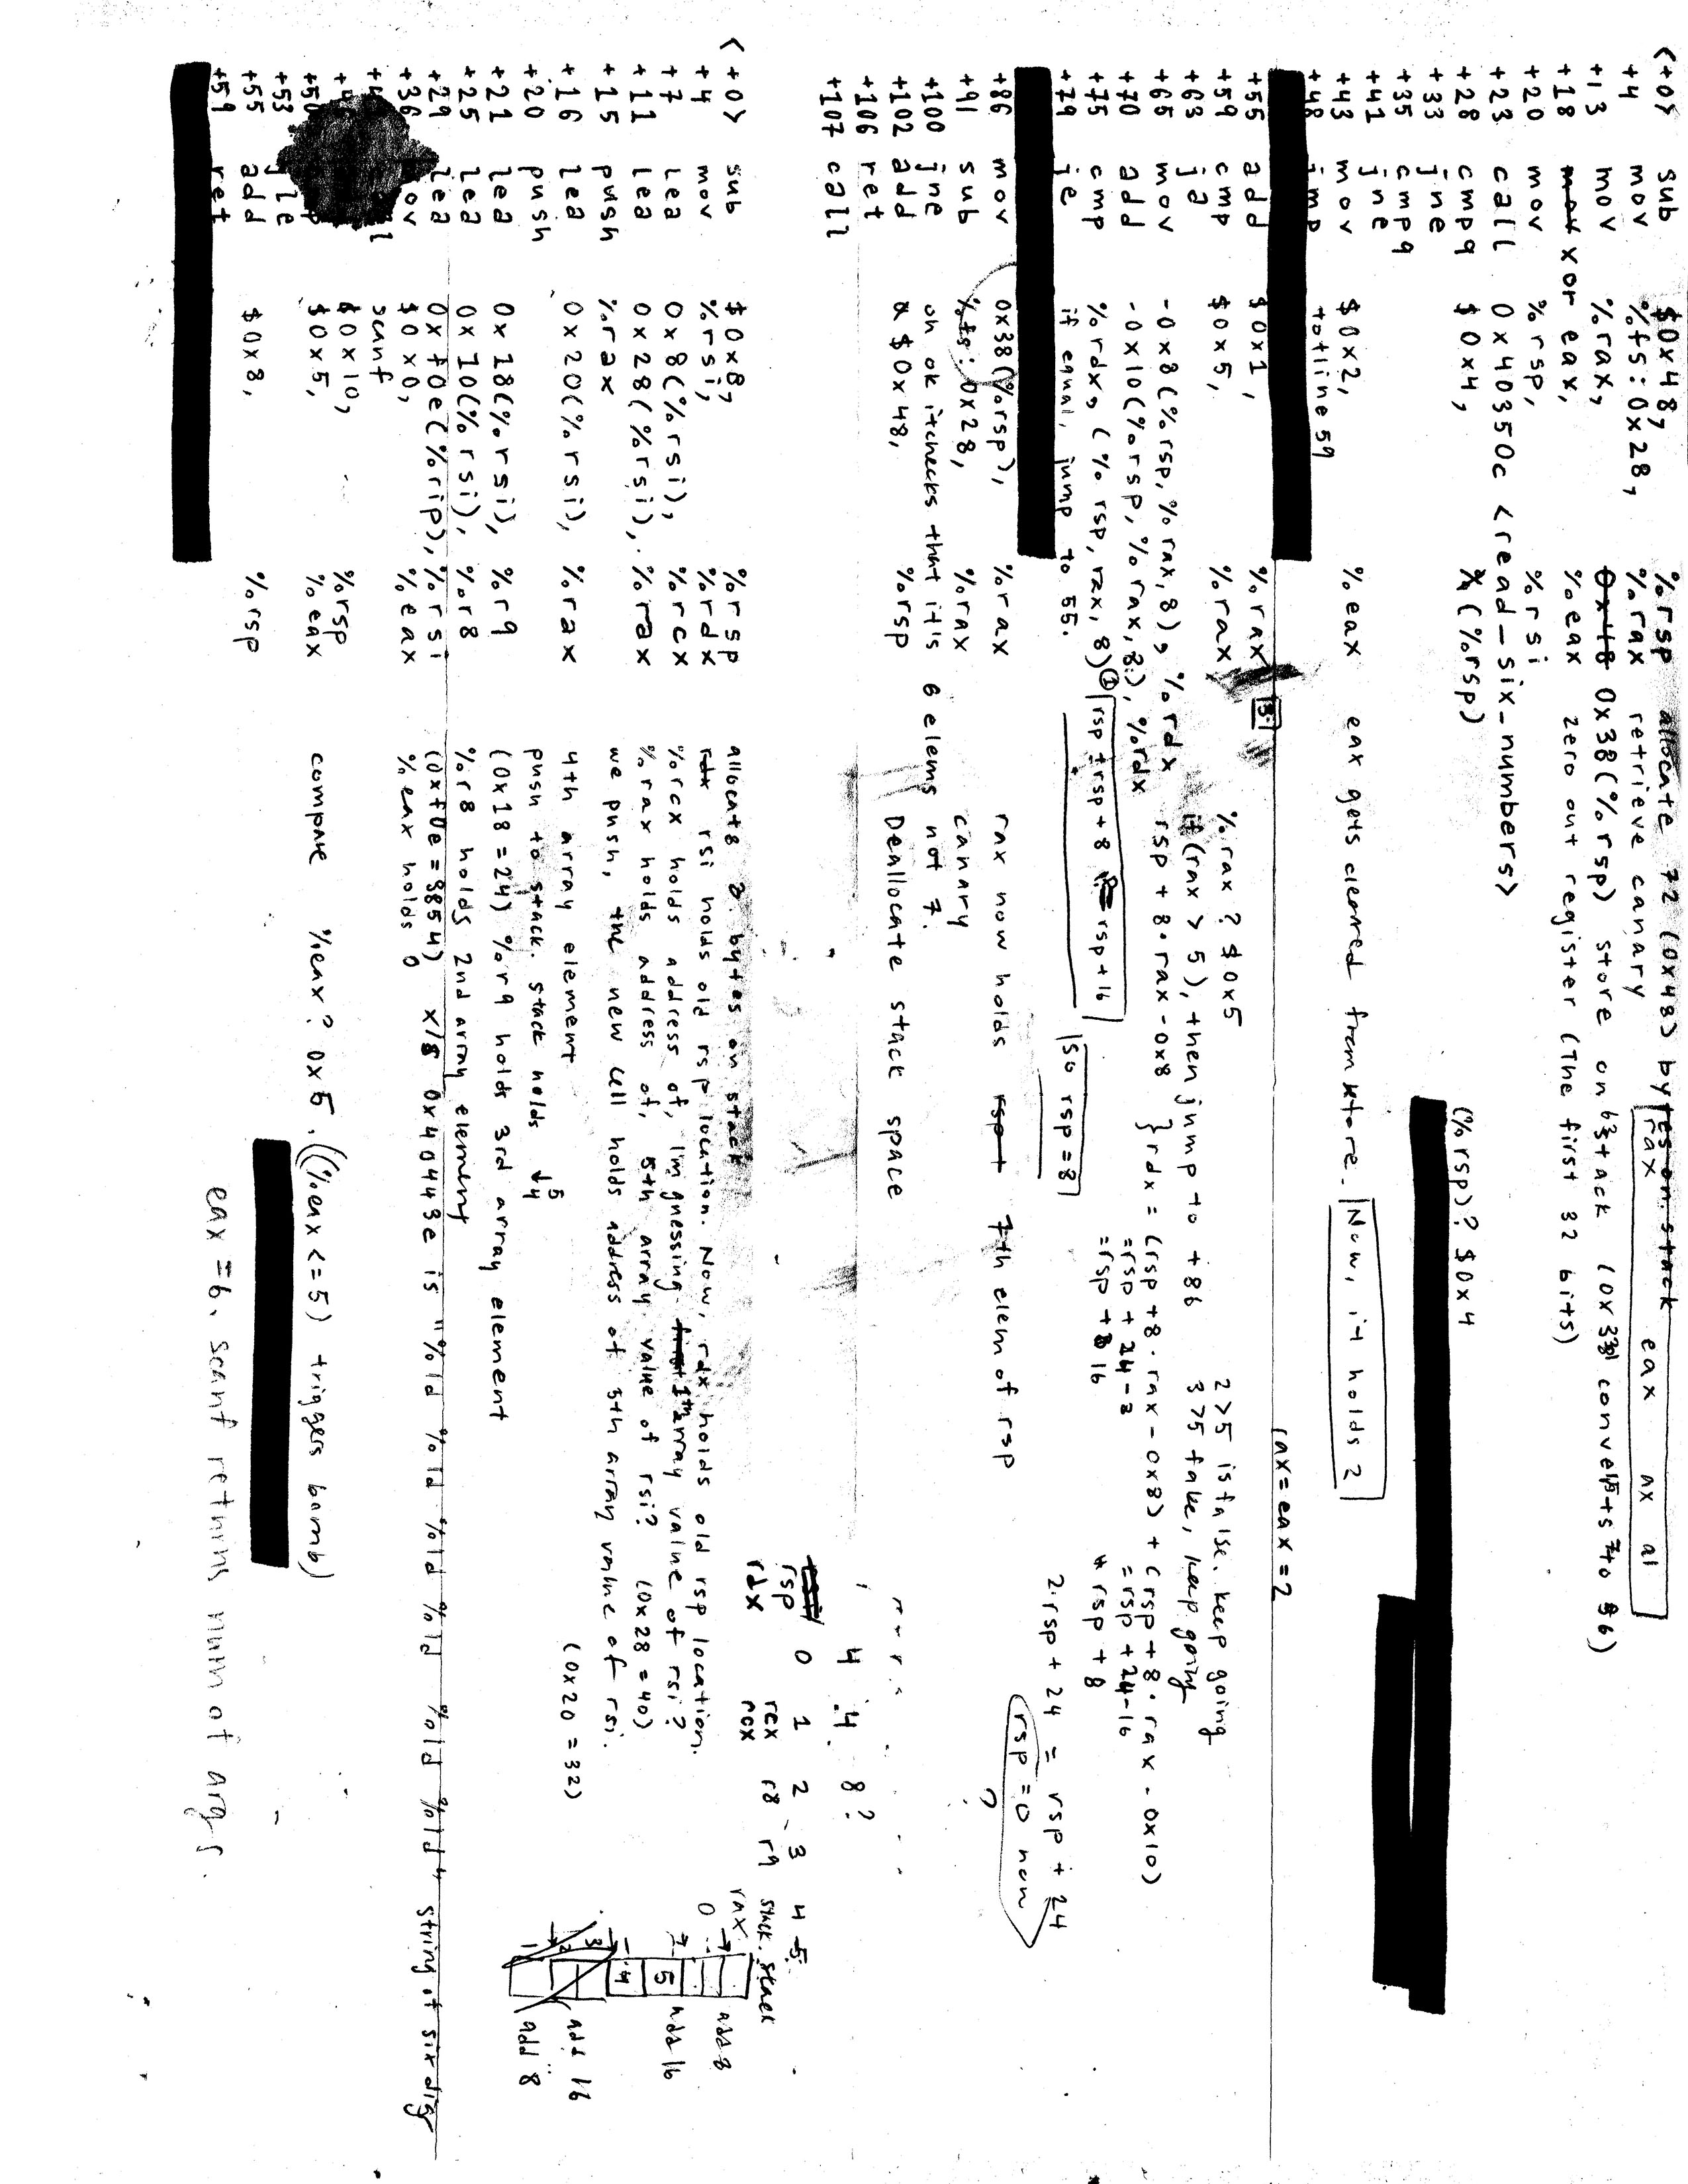 <+0> sub $0x48, %rsp allocate 72 (0x48) bytes on stack
+4 mov %fs:0x28, %rax retrieve canary rax eax ax al
+13 mov %rax, 0x38(%rsp) store on stack (0x38 converts to 56)
+18 xor eax, %eax zero out register (The first 32 bits)
+20 mov %rsp, %rsi
+23 call 0x40350c <read_six_numbers>
+28 cmpq $0x4, (%rsp) (%rsp)? $0x4
+33 jne
+35 cmpq
+41 jne
+43 mov $0x2, %eax eax gets cleared from before. Now, it holds 2
+48 jmp to line 59
rax = eax = 2
+55 add $0x1, %rax
+59 cmp $0x5, %rax %rax ? $0x5 2>5 is false, keep going
+63 ja if (rax > 5), then jump to +86 3>5 false, keep going
+65 mov -0x8(%rsp,%rax,8), %rdx rsp + 8·rax-0x8 } rdx = (rsp+8·rax-0x8) + (rsp+8·rax-0x10)
+70 add -0x10(%rsp,%rax,8), %rdx =rsp+24-8 =rsp+24-16
+75 cmp %rdx, (%rsp,rax,8) rsp+rsp+8 rsp+16 =rsp+16 rsp+8
+79 je if equal, jump to 55. So rsp=8 2·rsp+24 = rsp+24
rsp=0 now
?
+86 mov 0x38(%rsp), %rax rax now holds 7th elem of rsp
+91 sub %fs:0x28, %rax canary
+100 jne oh ok it checks that it's 6 elems not 7.
+102 add $0x48, %rsp Deallocate stack space
+106 ret
+107 call
4 4 8?
rsp 0 1 2 3 4 5
rdx rcx r8 r9 stack stack
rcx
<+0> sub $0x8, %rsp allocate 8 bytes on stack
+4 mov %rsi, %rdx rsi holds old rsp location. Now, rdx holds old rsp location.
+7 lea 0x8(%rsi), %rcx %rcx holds address of, I'm guessing 1th array value of rsi?
+11 lea 0x28(%rsi), %rax %rax holds address of, 5th array value of rsi? (0x28=40)
+15 push %rax we push, the new cell holds address of 5th array value of rsi.
+16 lea 0x20(%rsi), %rax 4th array element (0x20=32)
+20 push push to stack. stack holds ↓ 5 4
+21 lea 0x18(%rsi), %r9 (0x18=24) %r9 holds 3rd array element
+25 lea 0x10(%rsi), %r8 %r8 holds 2nd array element
+29 lea 0xf0e(%rip), %rsi (0xf0e=3854) x/s 0x40443e is "%ld %ld %ld %ld %ld %ld" string of six dig
+36 mov $0x0, %eax %eax holds 0
scanf
$0x10, %rsp
$0x5, %eax compare %eax? 0x5. ((%eax<=5) triggers bomb)
+53 jle
+55 add $0x8, %rsp
+59 ret
eax=6. scanf returns num of args.
rax
0
5
4
3
2
1
add 8
add 16
add 16
add 8